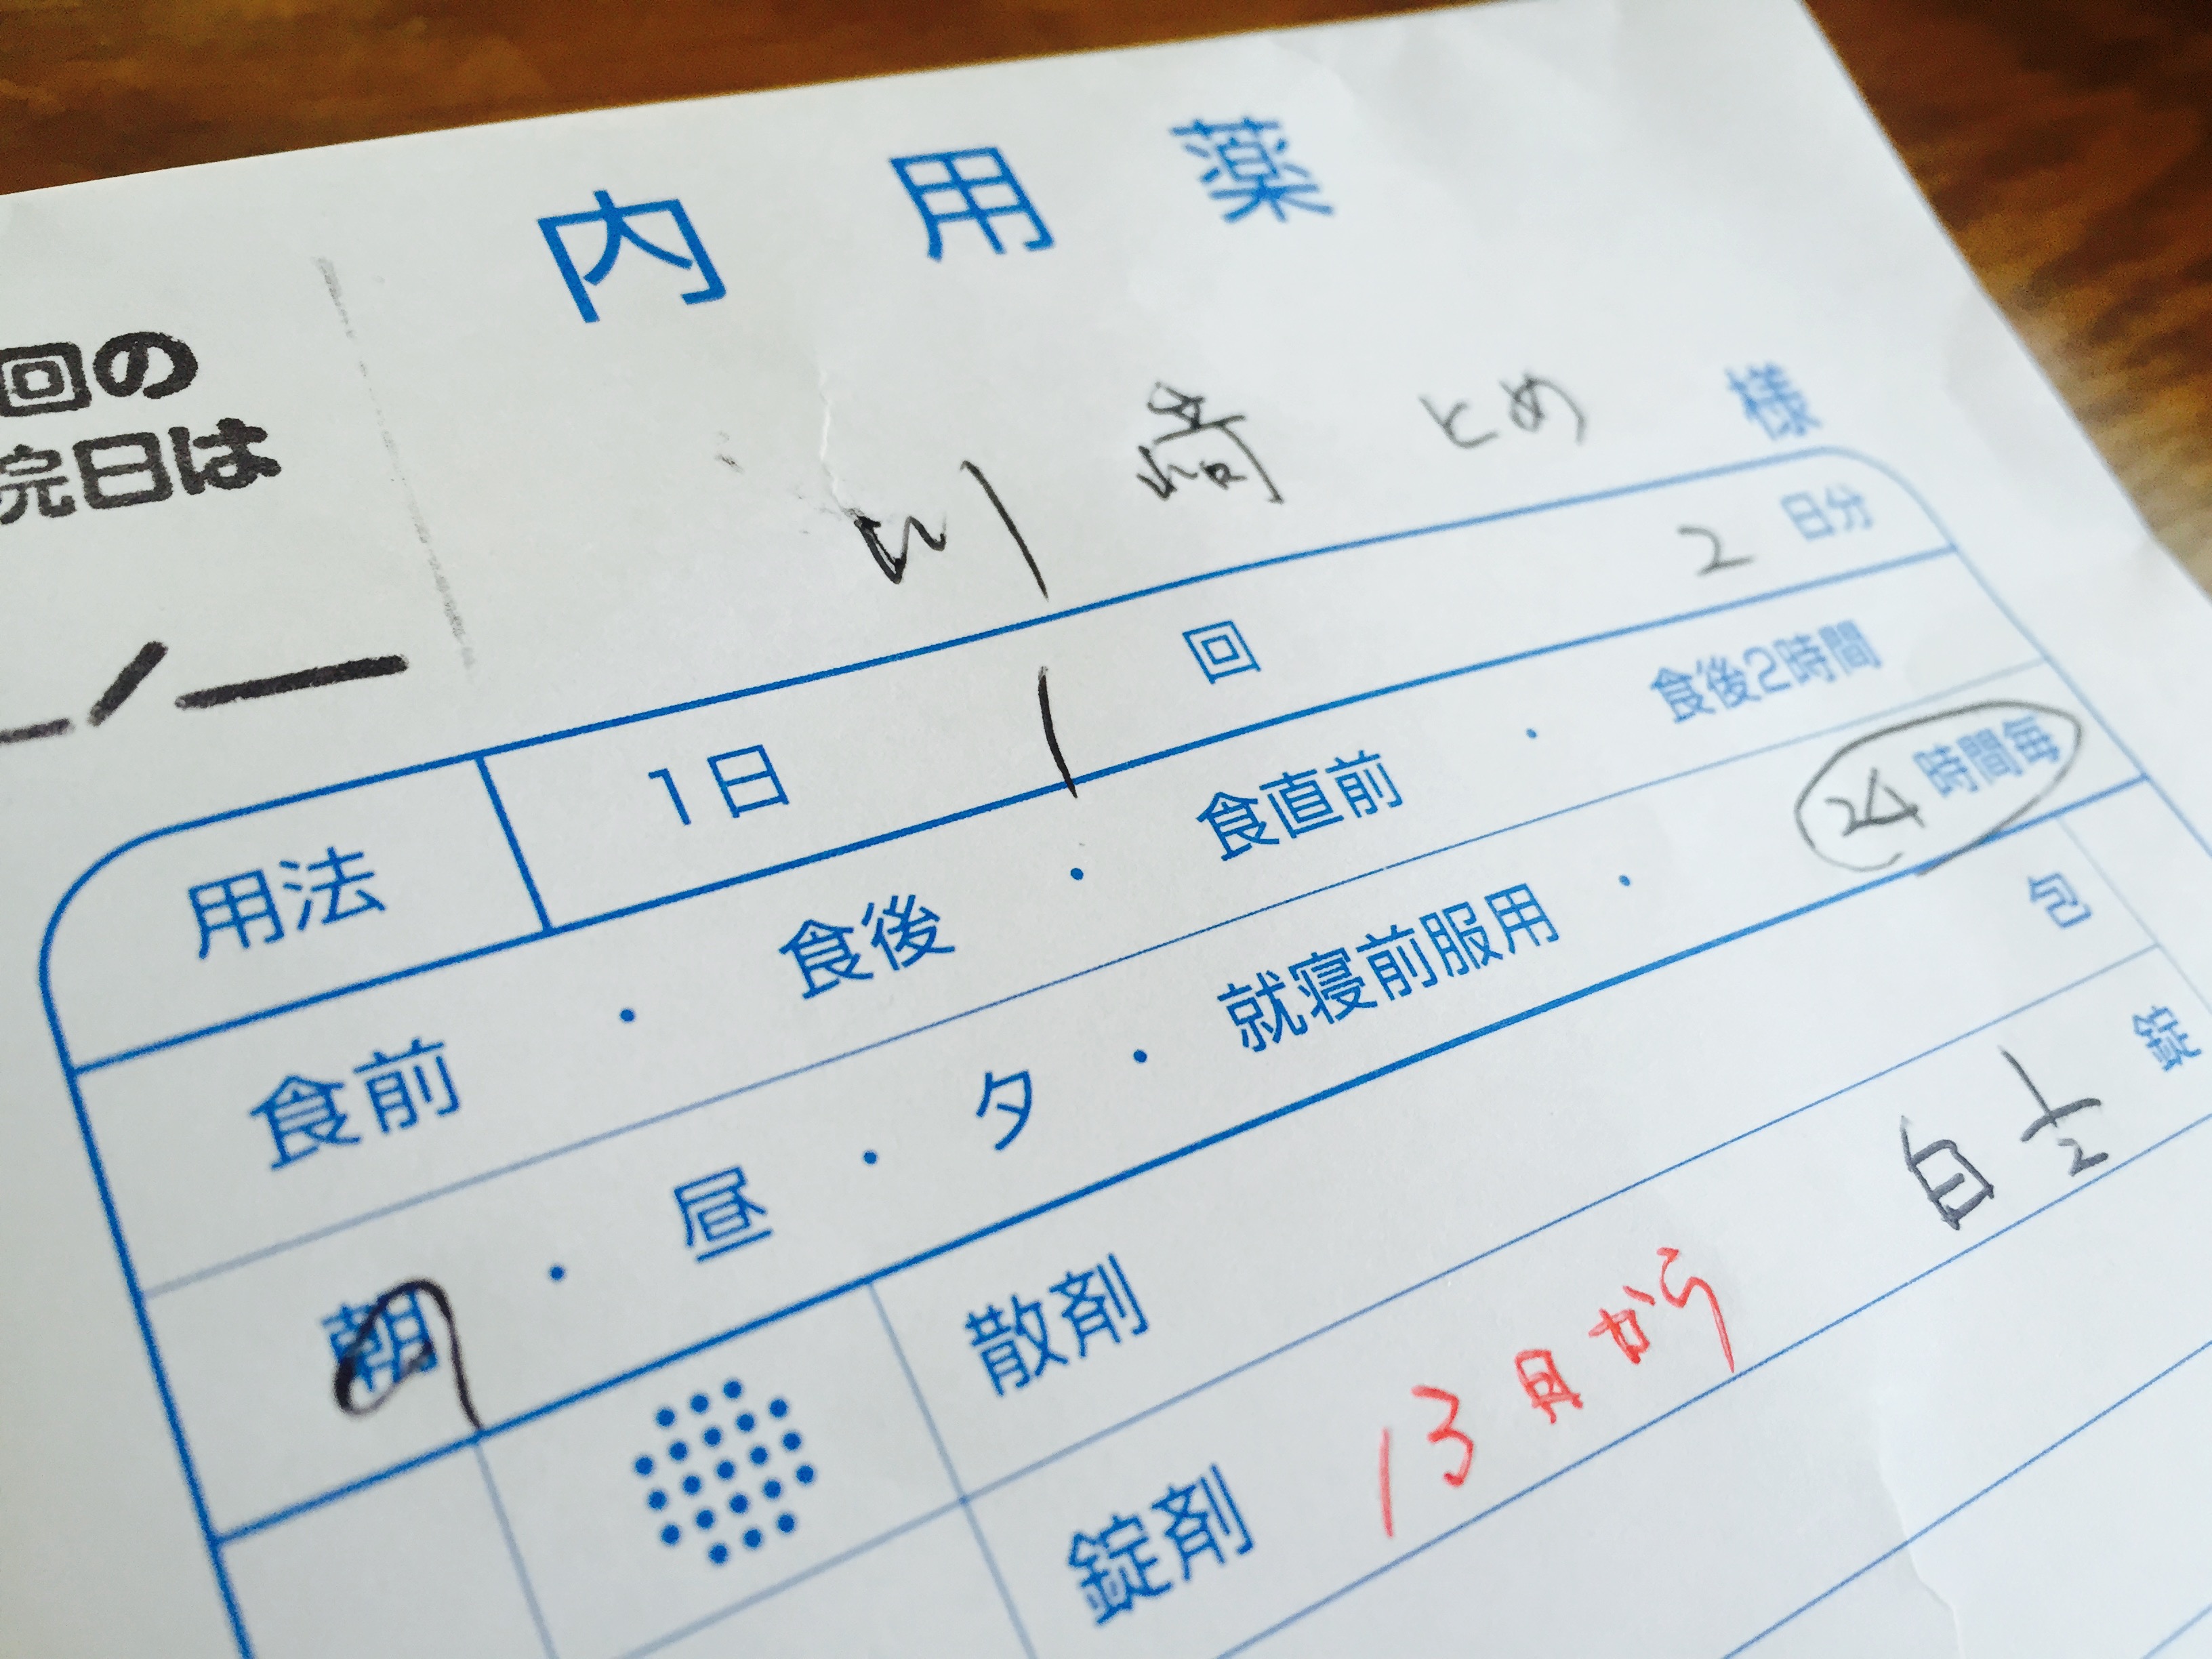 内用薬
回の
院日は
川崎 とめ 様
用法 1日 1 回 2 日分
食前 ・ 食後 ・ 食直前 ・ 食後2時間
朝 ・ 昼 ・ 夕 ・ 就寝前服用 ・ 24 時間毎
散剤 包
錠剤 13日から 白 1/2 錠